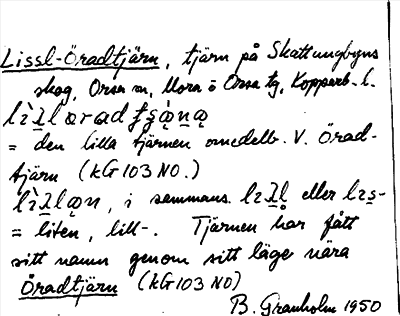 Lissl-Öradtjärn, tjärn på Skattungbyns
skog, Orsa sn, Mora o Orsa tg, Kopparb. l.
= den lilla tjärnen omedelb. V. Örad-
tjärn (kG 103 NO.)
i sammans. eller
= liten, lill-. Tjärnen har fått
sitt namn genom sitt läge nära
Öradtjärn (kG 103 NO)
B. Granholm 1950